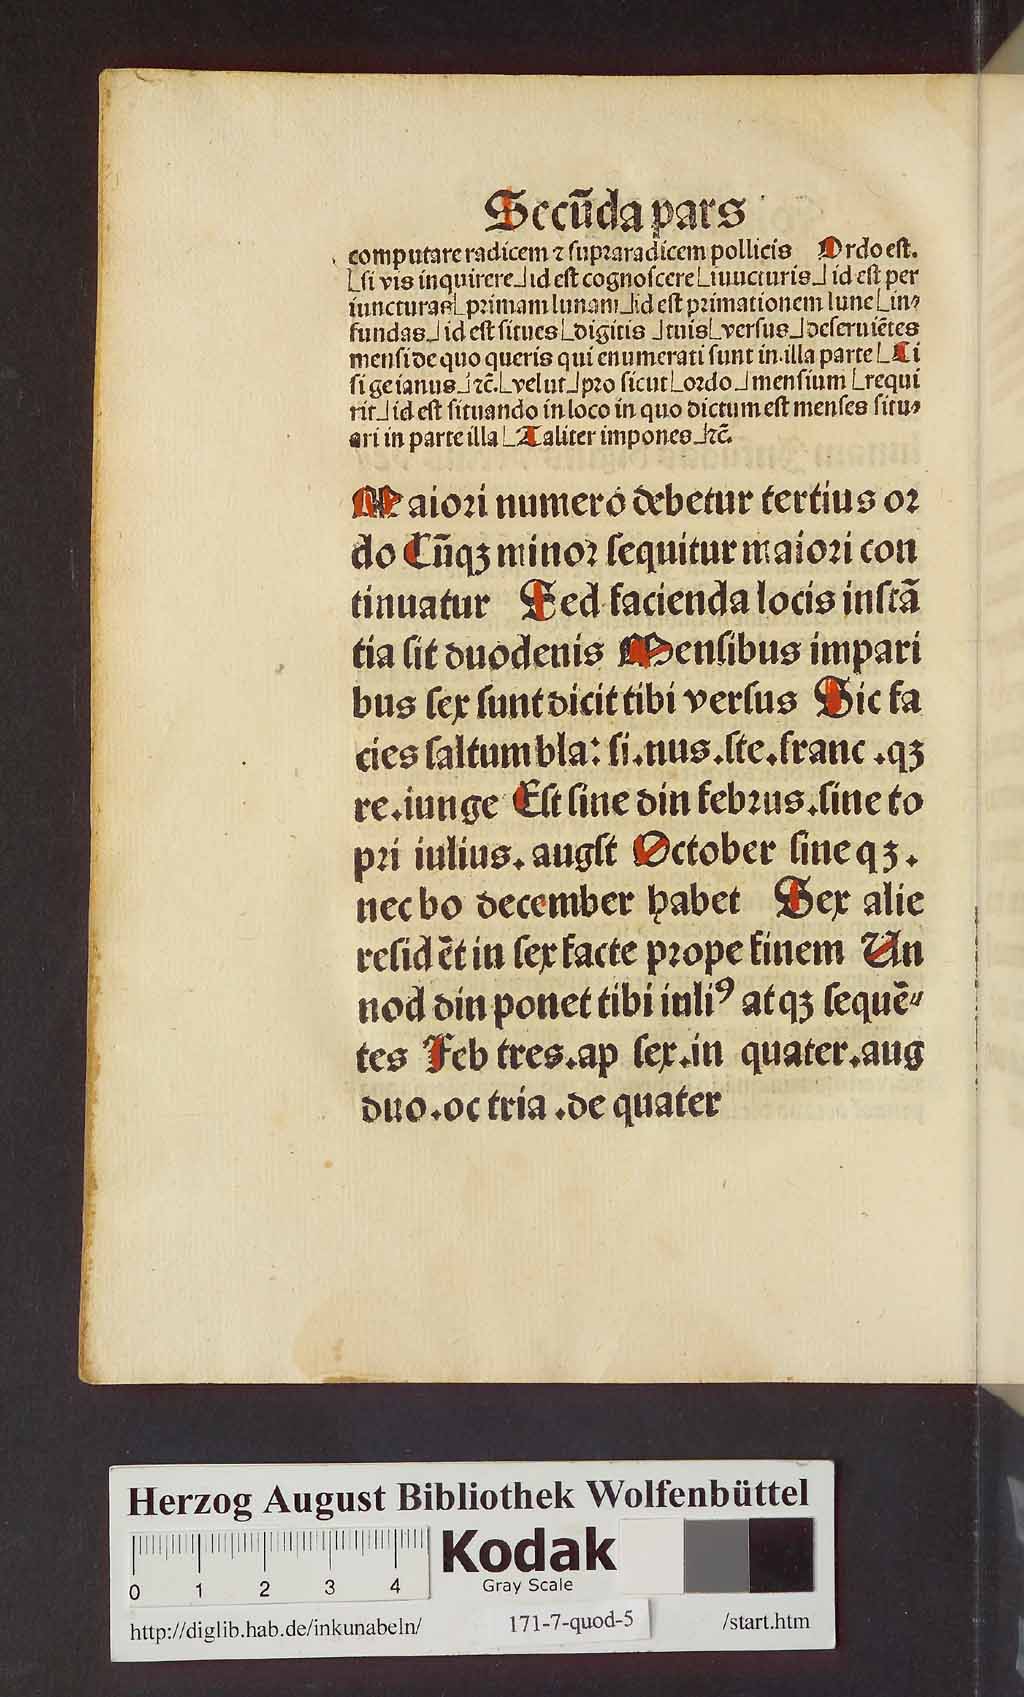 Secūda pars
computare radicem ⁊ supraradicem pollicis Ordo est.
⌊si vis inquirere⌋ id est cognoscere ⌊iuncturis⌋ id est per
iuncturas⌊primam lunam⌋id est primationem lune ⌊in⸗
fundas⌋ id est situes ⌊digitis ⌋tuis⌊versus⌋deseruiētes
mensi de quo queris qui enumerati sunt in.illa parte ⌊Ci
si ge ianus⌋⁊c̄.⌊velut⌋pro sicut⌊ordo⌋mensium ⌊requi
rit⌋id est situando in loco in quo dictum est menses situ⸗
ari in parte illa ⌊Taliter impones⌋⁊c̄.
Maiori numero debetur tertius or
do Cūqꝫ minor sequitur maiori con
tinuatur Sed facienda locis instā
tia sit duodenis Mensibus impari
bus sex sunt dicit tibi versus Sic fa
cies saltum bla: si.nus.ste.franc .qꝫ
re.iunge Est sine din februs.sine to
pri iulius. augst October sine qꝫ.
nec bo december habet Sex alie
residēt in sex facte prope finem Un
nod din ponet tibi iuliꝰ atqꝫ sequē⸗
tes Feb tres.ap sex.in quater.aug
duo.oc tria .de quater
Herzog August Bibliothek Wolfenbüttel
0 1 2 3 4
Kodak
Gray Scale
http://diglib.hab.de/inkunabeln/ 171-7-quod-5 /start.htm